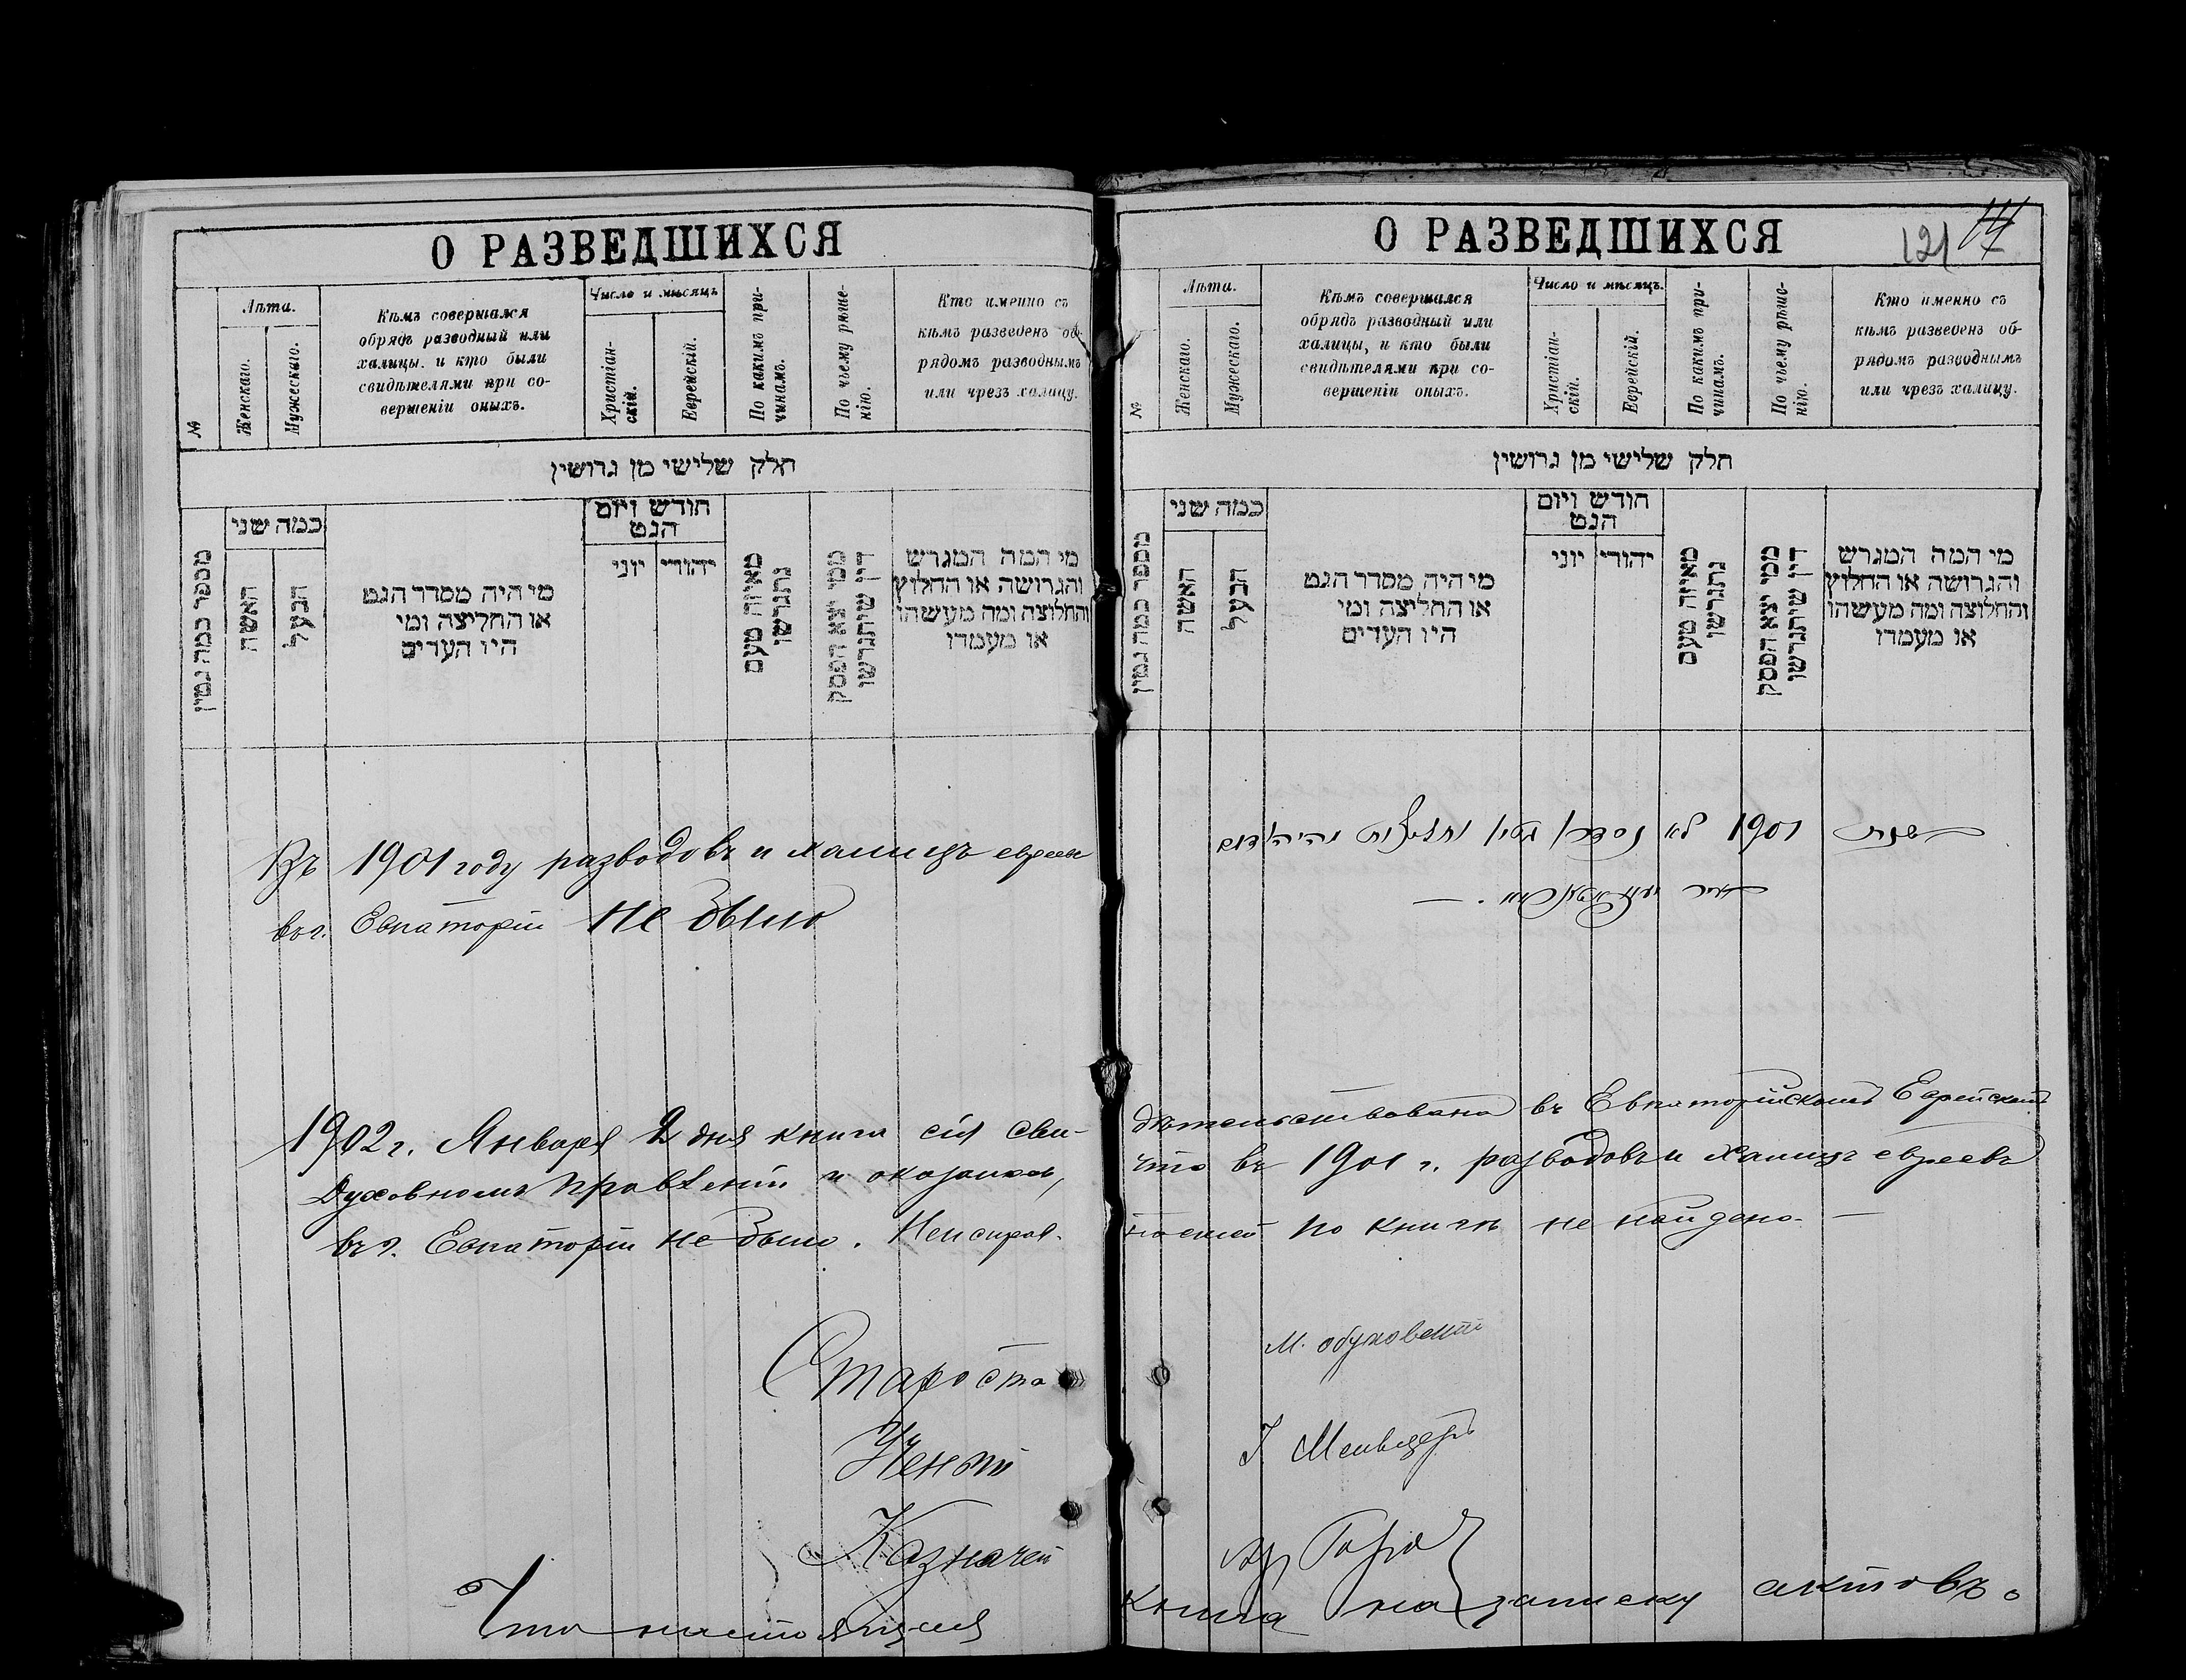 О РАЗВЕДШИХСЯ
№
Лѣта.
Женскаго.
Мужескаго.
Кѣмъ совершался
обрядъ разводный или
халицы. и кто были
свидѣтелями при со-
вершеніи оныхъ.
Число и мѣсяцъ
Христіан-
скій.
Еврейскій.
По какимъ при-
чинамъ.
По чьему рѣше-
нію.
Кто именно съ
кѣмъ разведенъ об-
рядомъ разводнымъ
или чрезъ халицу.
חלק שלישי מן גרושין
מספר כמה גטין
כמה שני
האשה
הבעל
מי היה מסדר הגט
או החליצה ומי
היו העדים
חודש ויום
הגט
יוני
יהודי
מאיזה טעם
נתגרשו
ממי יצא הפסק
דין שיתגרשו
מי המה המגרש
והגרושה או החלוץ
והחלוצה ומה מעשהו
או מעמדו
Въ 1901 году разводовъ и халицъ евреевъ
въ г. Евпаторіи не было
1902 г. Января 2 дня книга сія сви-
Духовномъ Правленіи и оказалось,
въ г. Евпаторіи не было. Неисправ-
Староста
Ученый
Казначей
Что настоящая
О РАЗВЕДШИХСЯ
121
№
Лѣта.
Женскаго.
Мужескаго.
Кѣмъ совершался
обрядъ разводный или
халицы, и кто были
свидѣтелями при со-
вершеніи оныхъ.
Число и мѣсяцъ.
Христіан-
скій.
Еврейскій.
По какимъ при-
чинамъ.
По чьему рѣше-
нію.
Кто именно съ
кѣмъ разведенъ об-
рядомъ разводнымъ
или чрезъ халицу.
חלק שלישי מן גרושין
מספר כמה גטין
כמה שני
האשה
הבעל
מי היה מסדר הגט
או החליצה ומי
היו העדים
חודש ויום
הגט
יוני
יהודי
מאיזה טעם
נתגרשו
ממי יצא הפסק
דין שיתגרשו
מי המה המגרש
והגרושה או החלוץ
והחלוצה ומה מעשהו
או מעמדו
בשנת 1901 לא נסדרו גטין וחליצות
дѣтельствована въ Евпаторійскомъ Еврейскомъ
что въ 1901 г. разводовъ и халицъ евреевъ
ностей по книгѣ не найдено. —
М. Обуховскій
книга на записку актовъ о